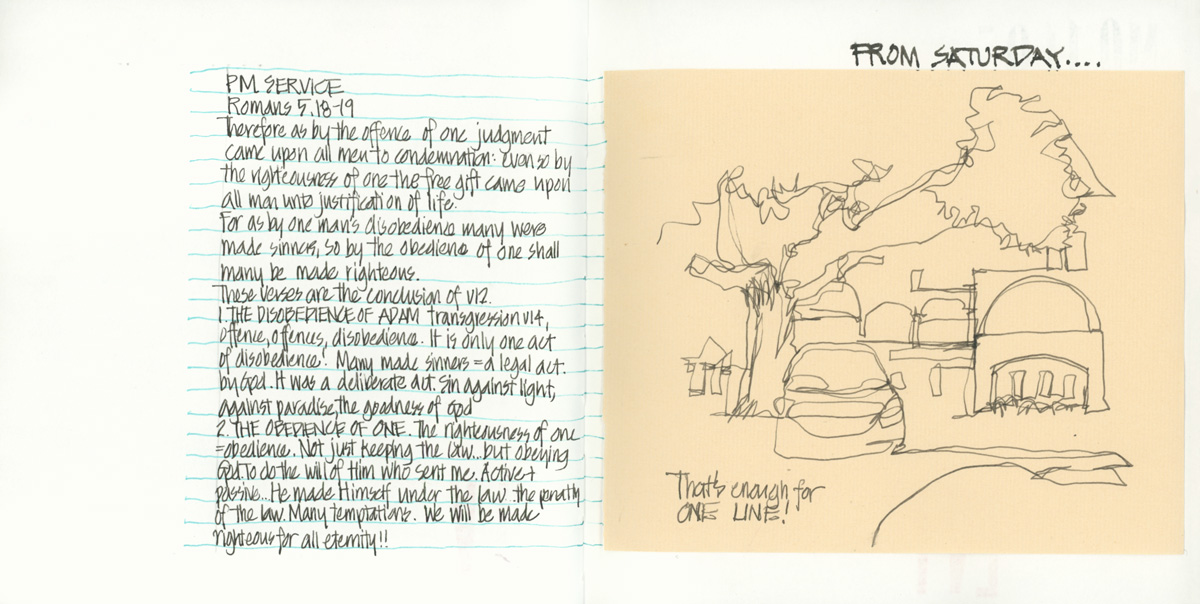 PM SERVICE
Romans 5.18-19
Therefore as by the offence of one judgment
came upon all men to condemnation: Even so by
the righteousness of one the free gift came upon
all men unto justification of life.
For as by one man's disobedience many were
made sinners, so by the obedience of one shall
many be made righteous.
These verses are the conclusion of v12.
1. THE DISOBEDIENCE OF ADAM transgression v14,
offence, offences, disobedience. It is only one act
of disobedience! Many made sinners = a legal act.
by God. It was a deliberate act. Sin against light,
against paradise, the goodness of God
2. THE OBEDIENCE OF ONE. The righteousness of one
=obedience. Not just keeping the law... but obeying
God. To do the will of Him who sent me. Active +
passive... He made Himself under the law. the penalty
of the law. Many temptations. We will be made
righteous for all eternity!!
FROM SATURDAY....
That's enough for
ONE LINE!